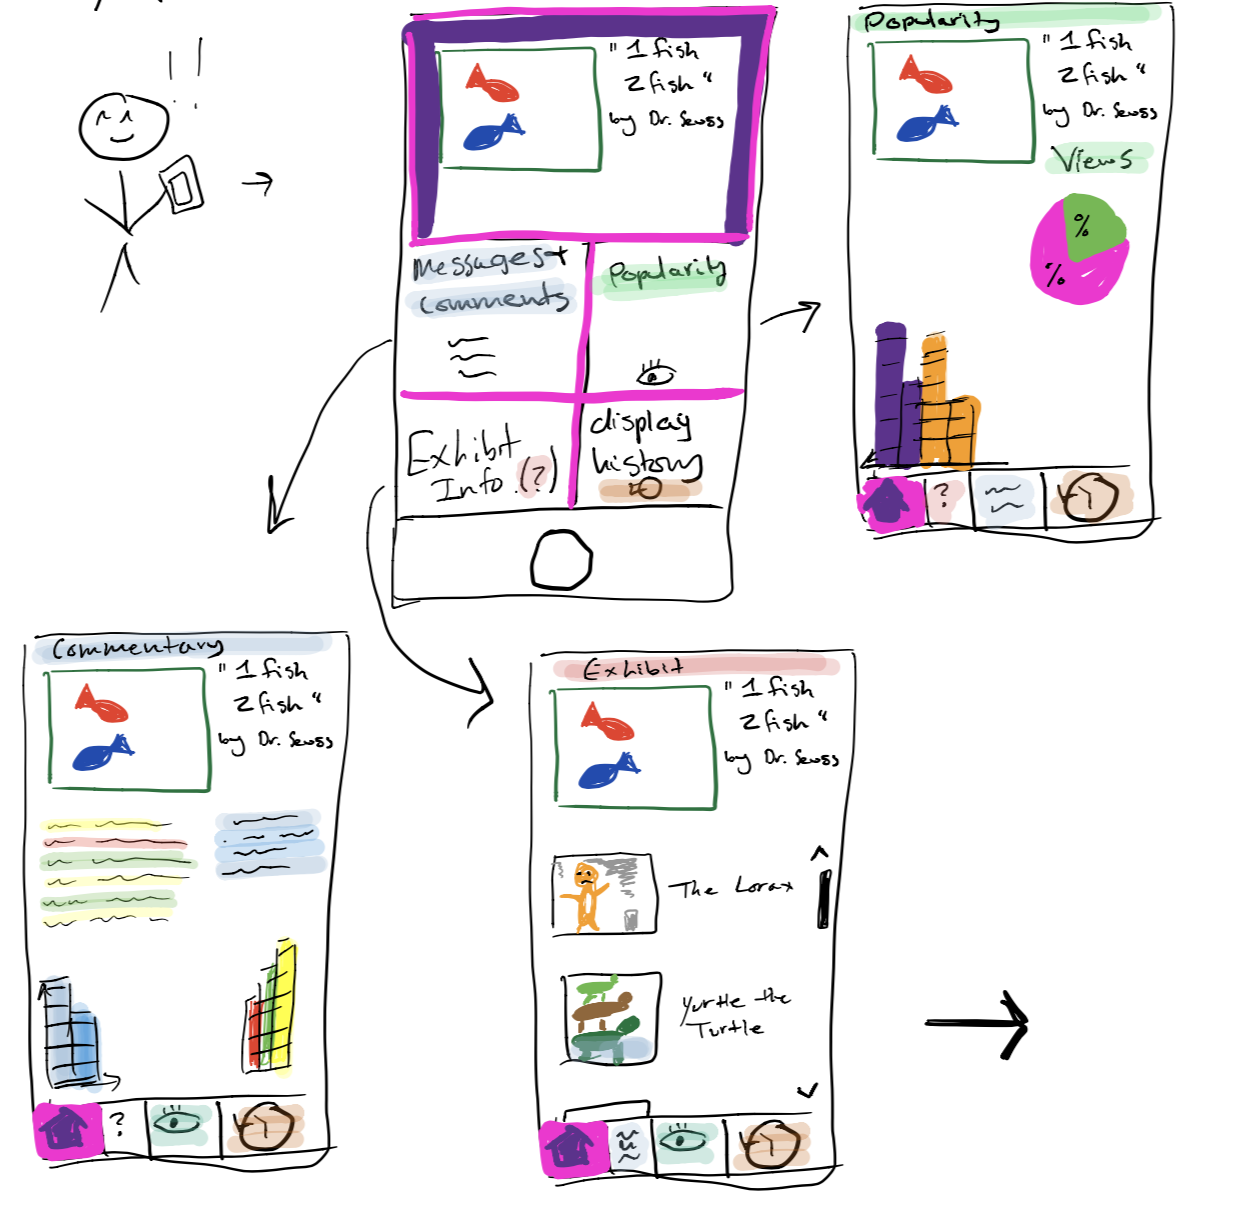 ! !
" 1 fish
2 fish "
by Dr. Seuss
Messages +
Comments
Popularity
Exhibit
Info (?)
display
history
Popularity
" 1 fish
2 fish "
by Dr. Seuss
Views
%
%
?
Commentary
" 1 fish
2 fish "
by Dr. Seuss
?
Exhibit
" 1 fish
2 fish "
by Dr. Seuss
The Lorax
Yurtle the
Turtle